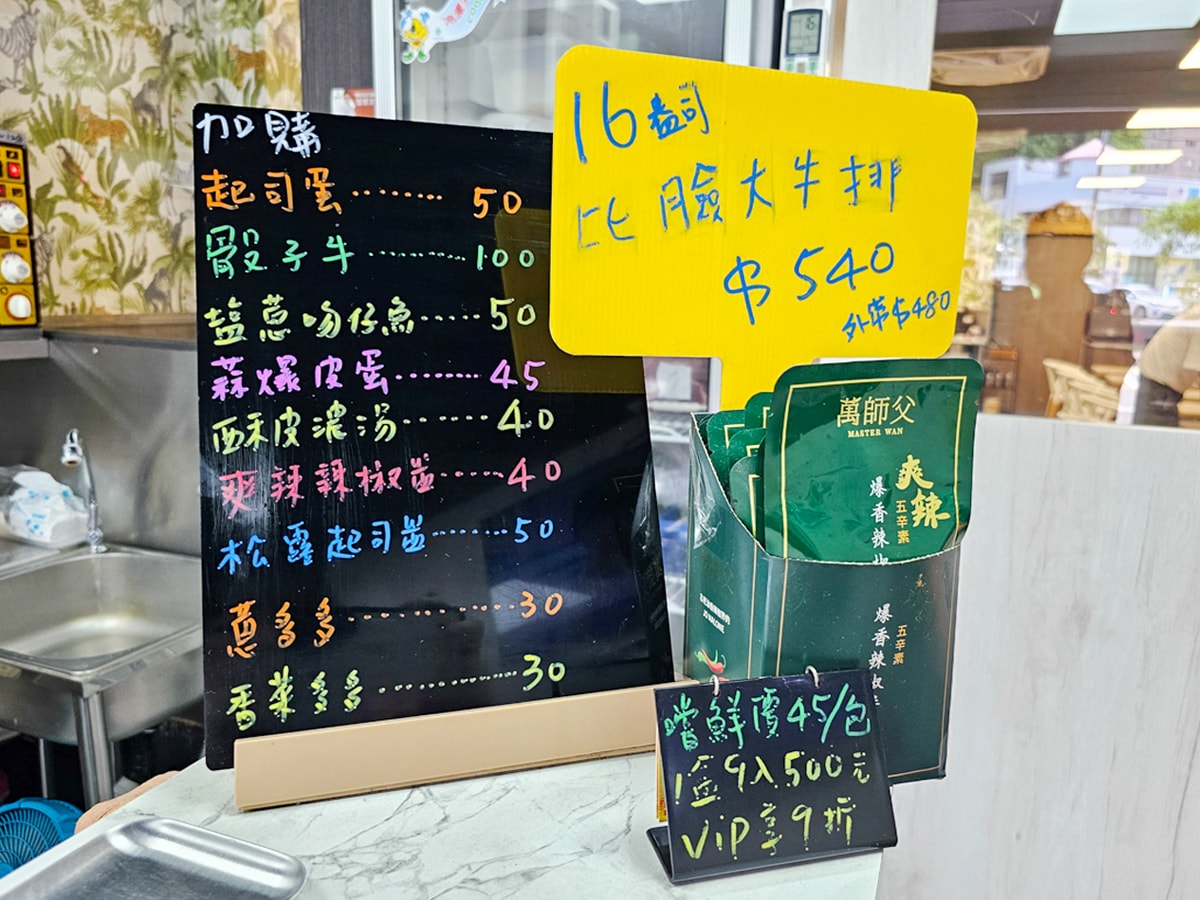 加購
起司蛋········ 50
骰子牛········100
塩蔥吻仔魚·····50
蒜爆皮蛋········45
酥皮濃湯······40
爽辣辣椒盐····40
松露起司盐······50
蔥多多··········30
香菜多多···········30
16盎司
比臉大牛排
$540
外帶$480
萬師父
MASTER WAN
爽辣
五辛素
爆香辣椒
五辛素
爆香辣椒
嚐鮮價45/包
1盒9入500元
VIP享9折